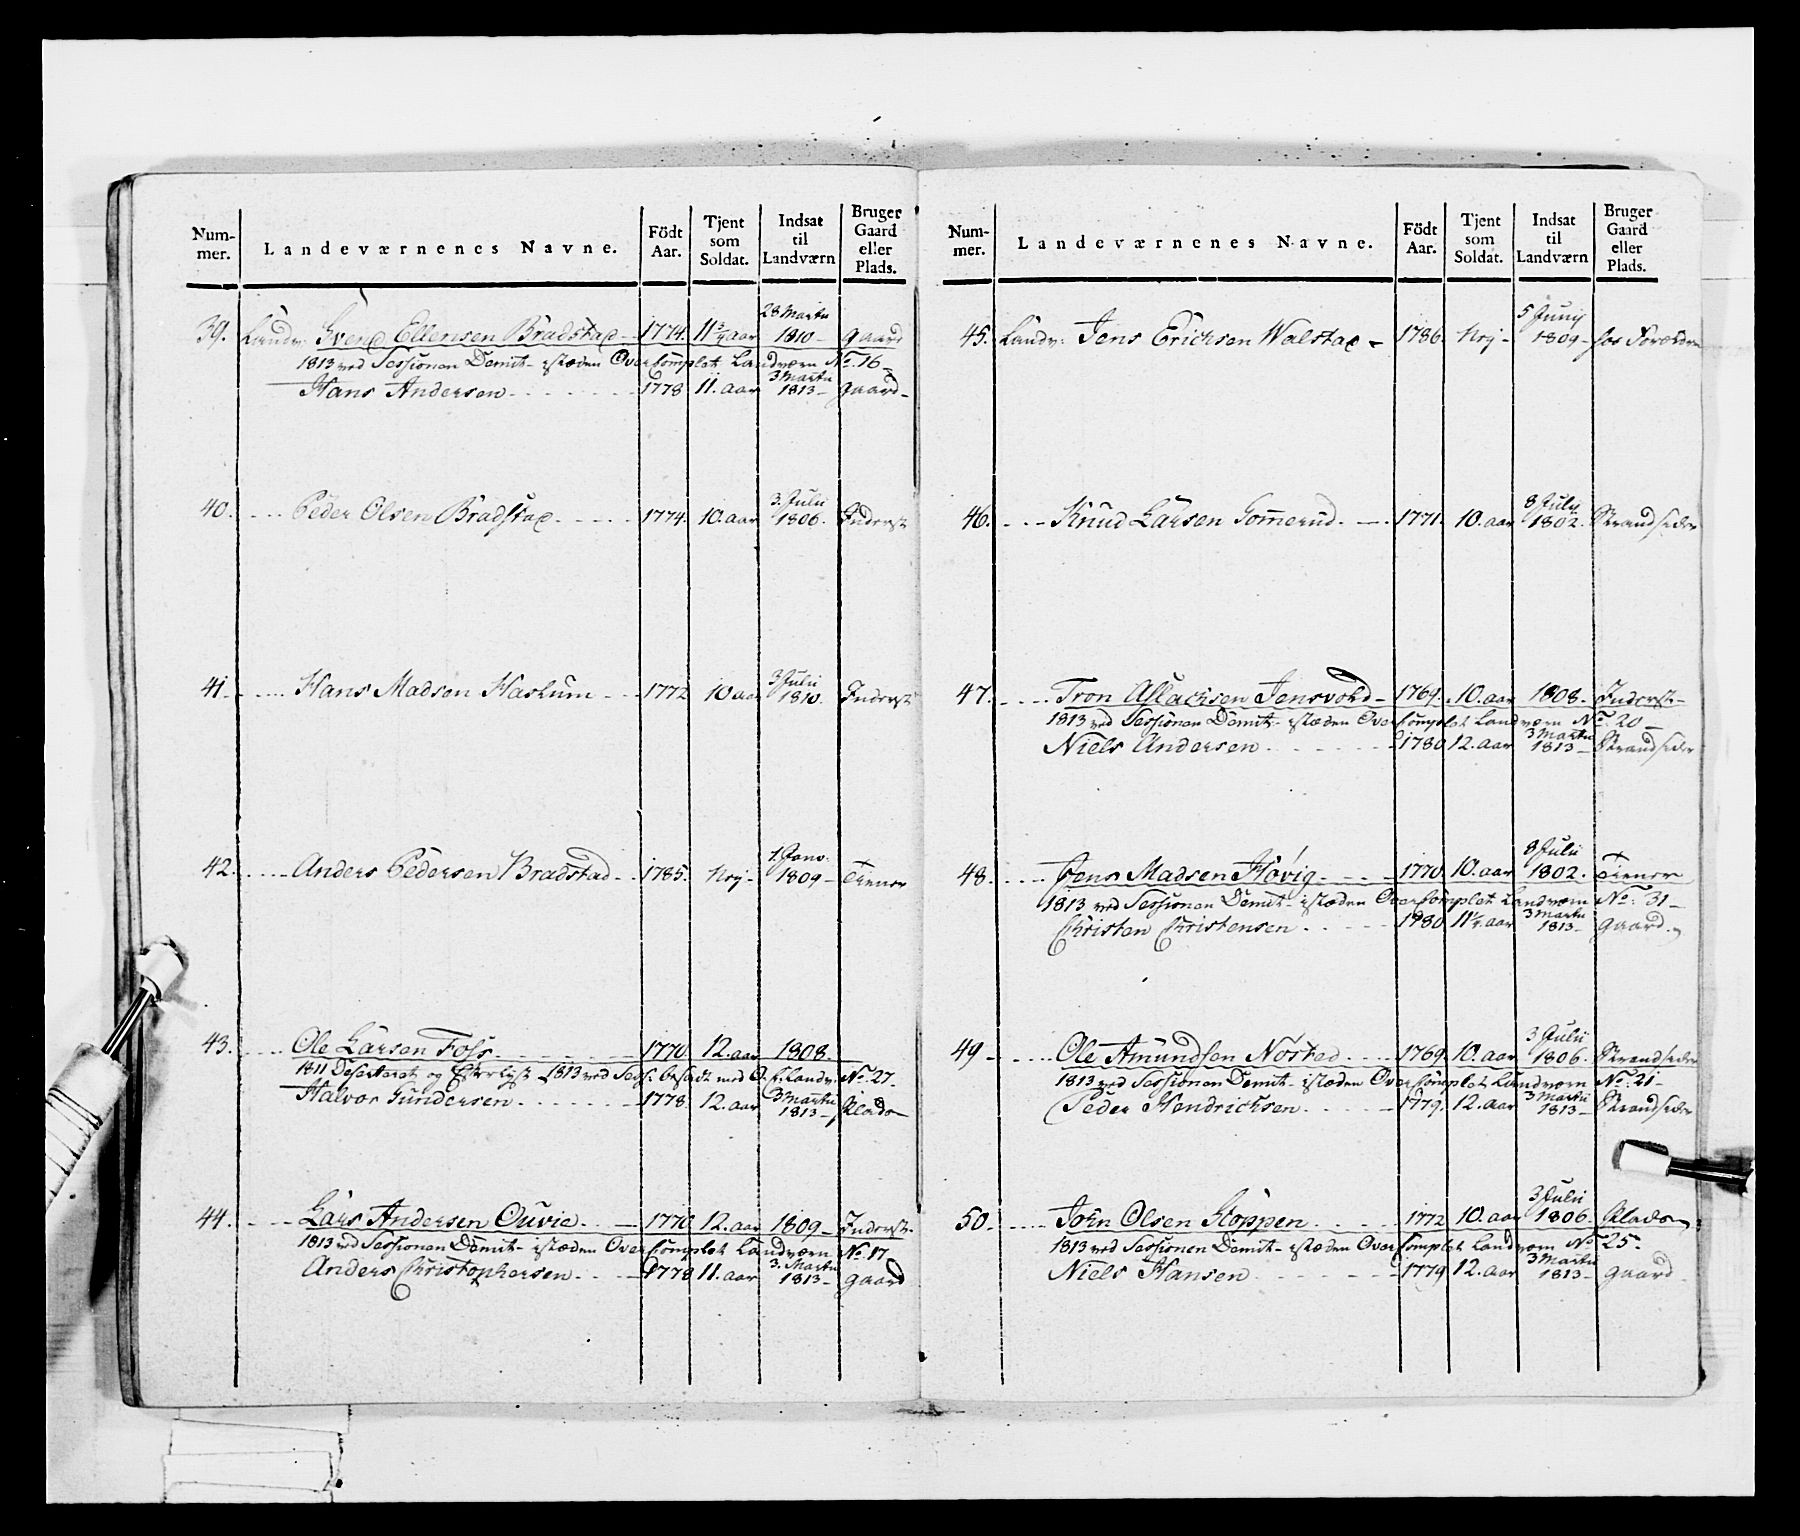 Num-
mer.
Landeværnenes Navne.
Födt
Aar.
Tjent
som
Soldat.
Indsat
til
Landværn
Bruger
Gaard
eller
Plads.
28 Martii
39. Landv: Svend Ellensen Bradstad 1774. 11 3/4 aar 1810 gaard
1813 ved Sessionen Demit- istæden OverComplet Landværn No. 16
3 Martii
Hans Andersen 1778 11. aar 1813 gaard
3. Julii
40. Peder Olsen Bradstad 1774. 10. aar 1806. Inderst
3 Julii
41. Hans Madsen Haslum 1772 10 aar 1810. Inderst
1. Janv.
42. Anders Pedersen Bradstad 1785. Nej 1809 Tiener
43. Ole Larsen Foss 1770. 12. aar 1808.
1811 Deserteret og Efterlyst 1813 ved Sess: besadt med O. C. Landv: No. 27.
3 Martii
Halvor Gundersen 1778. 12. aar 1813 Plads
44. Lars Andersen Ouvie 1770 12. aar 1809 Inderst
1813 ved Sessionen Demit- istæden OverComplet Landværn No. 17
3. Martii
Anders Christophersen 1778 11. aar 1813 gaard
Num-
mer.
Landeværnenes Navne.
Födt
Aar.
Tjent
som
Soldat.
Indsat
til
Landværn
Bruger
Gaard
eller
Plads.
5 Junij
45. Landv: Jens Erichsen Walstad 1786. Nej 1809 hos Forældre
8 Julij
46. Knud Larsen Gommerud 1771. 10. aar 1802. Strandsidder
47. Tron Aslachsen Jensvold 1769. 10. aar 1808. Inderst
1813 ved Sessionen Demit- istæden OverComplet Landværn No. 20
3 Martii
Niels Andersen 1780 12. aar 1813 Strandsidder
8 Julii
48. Jens Madsen Høvig 1770 10. aar 1802. Tiener
1813 ved Sessionen Demit- istæden OverComplet Landværn No: 31
3 Martii
Christen Christensen 1780 11 1/4 aar 1813 gaard
3 Julii
49 Ole Amundsen Nosted 1769. 10. aar 1806. Strandsidder
1813 ved Sessionen Demit- istæden OverComplet Landværn No: 21
3 Martii
Peder Hendrichsen 1779. 12. aar 1813 Strandsidder
3 Julii
50. John Olsen Stoppen 1772 10. aar 1806. Plads
1813 ved Sessionen Demit- istæden OverComplet Landværn No 25.
3 Martii
Niels Hansen 1779 12. aar 1813 gaard